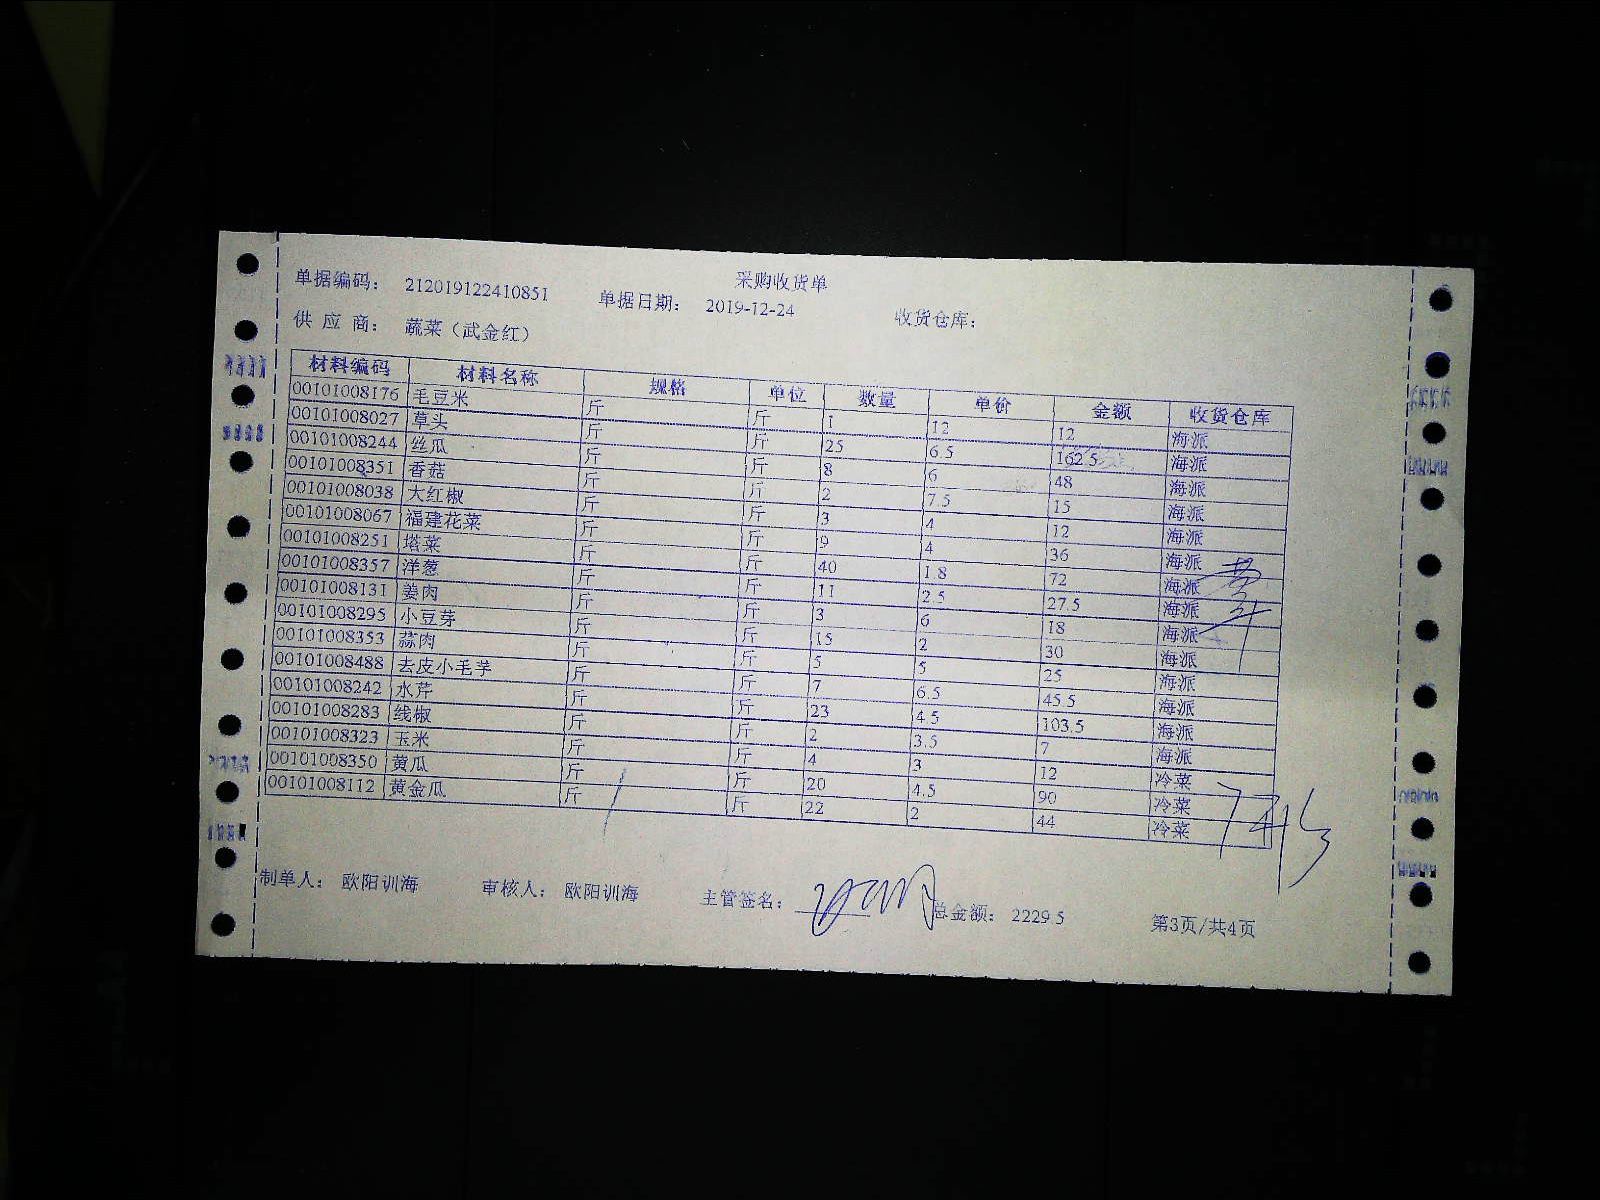 采购收货单
单据编码： 212019122410851 单据日期： 2019-12-24 收货仓库：
供 应 商： 蔬菜（武金红）
材料编码 材料名称 规格 单位 数量 单价 金额 收货仓库
00101008176 毛豆米 斤 斤 1 12 12 海派
00101008027 草头 斤 斤 25 6.5 162.5 海派
00101008244 丝瓜 斤 斤 8 6 48 海派
00101008351 香菇 斤 斤 2 7.5 15 海派
00101008038 大红椒 斤 斤 3 4 12 海派
00101008067 福建花菜 斤 斤 9 4 36 海派
00101008251 塔菜 斤 斤 40 1.8 72 海派
00101008357 洋葱 斤 斤 11 2.5 27.5 海派
00101008131 姜肉 斤 斤 3 6 18 海派
00101008295 小豆芽 斤 斤 15 2 30 海派
00101008353 蒜肉 斤 斤 5 5 25 海派
00101008488 去皮小毛芋 斤 斤 7 6.5 45.5 海派
00101008242 水芹 斤 斤 23 4.5 103.5 海派
00101008283 线椒 斤 斤 2 3.5 7 海派
00101008323 玉米 斤 斤 4 3 12 冷菜
00101008350 黄瓜 斤 斤 20 4.5 90 冷菜
00101008112 黄金瓜 斤 斤 22 2 44 冷菜
制单人： 欧阳训海 审核人： 欧阳训海 主管签名： 总金额： 2229.5 第3页/共4页